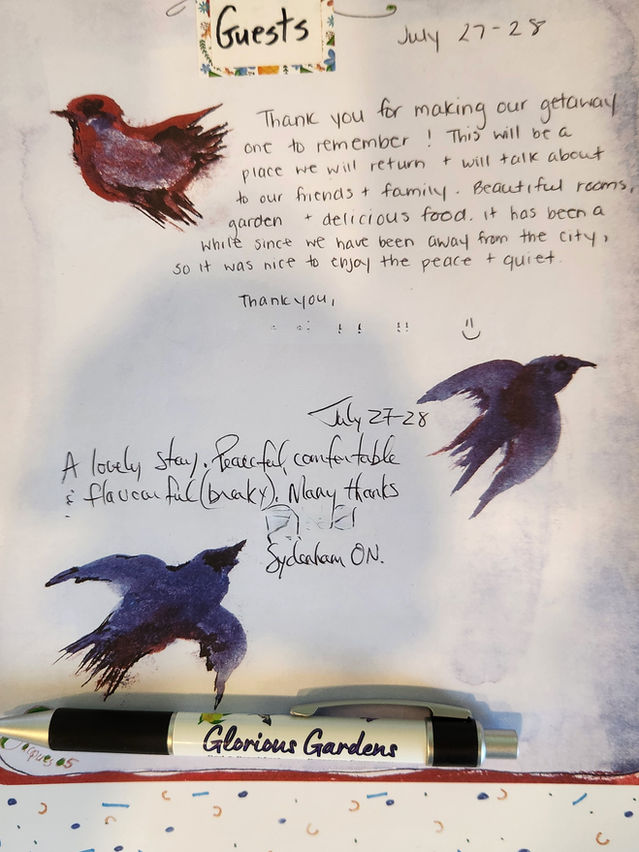 Guests
July 27-28
Thank you for making our getaway
one to remember! This will be a
place we will return + will talk about
to our friends + family. Beautiful rooms,
garden + delicious food. it has been a
while since we have been away from the city,
so it was nice to enjoy the peace + quiet.
Thank you,
July 27-28
A lovely stay. Peaceful, comfortable
& flavourful (breaky). Many thanks
Sydenham ON.
Glorious Gardens